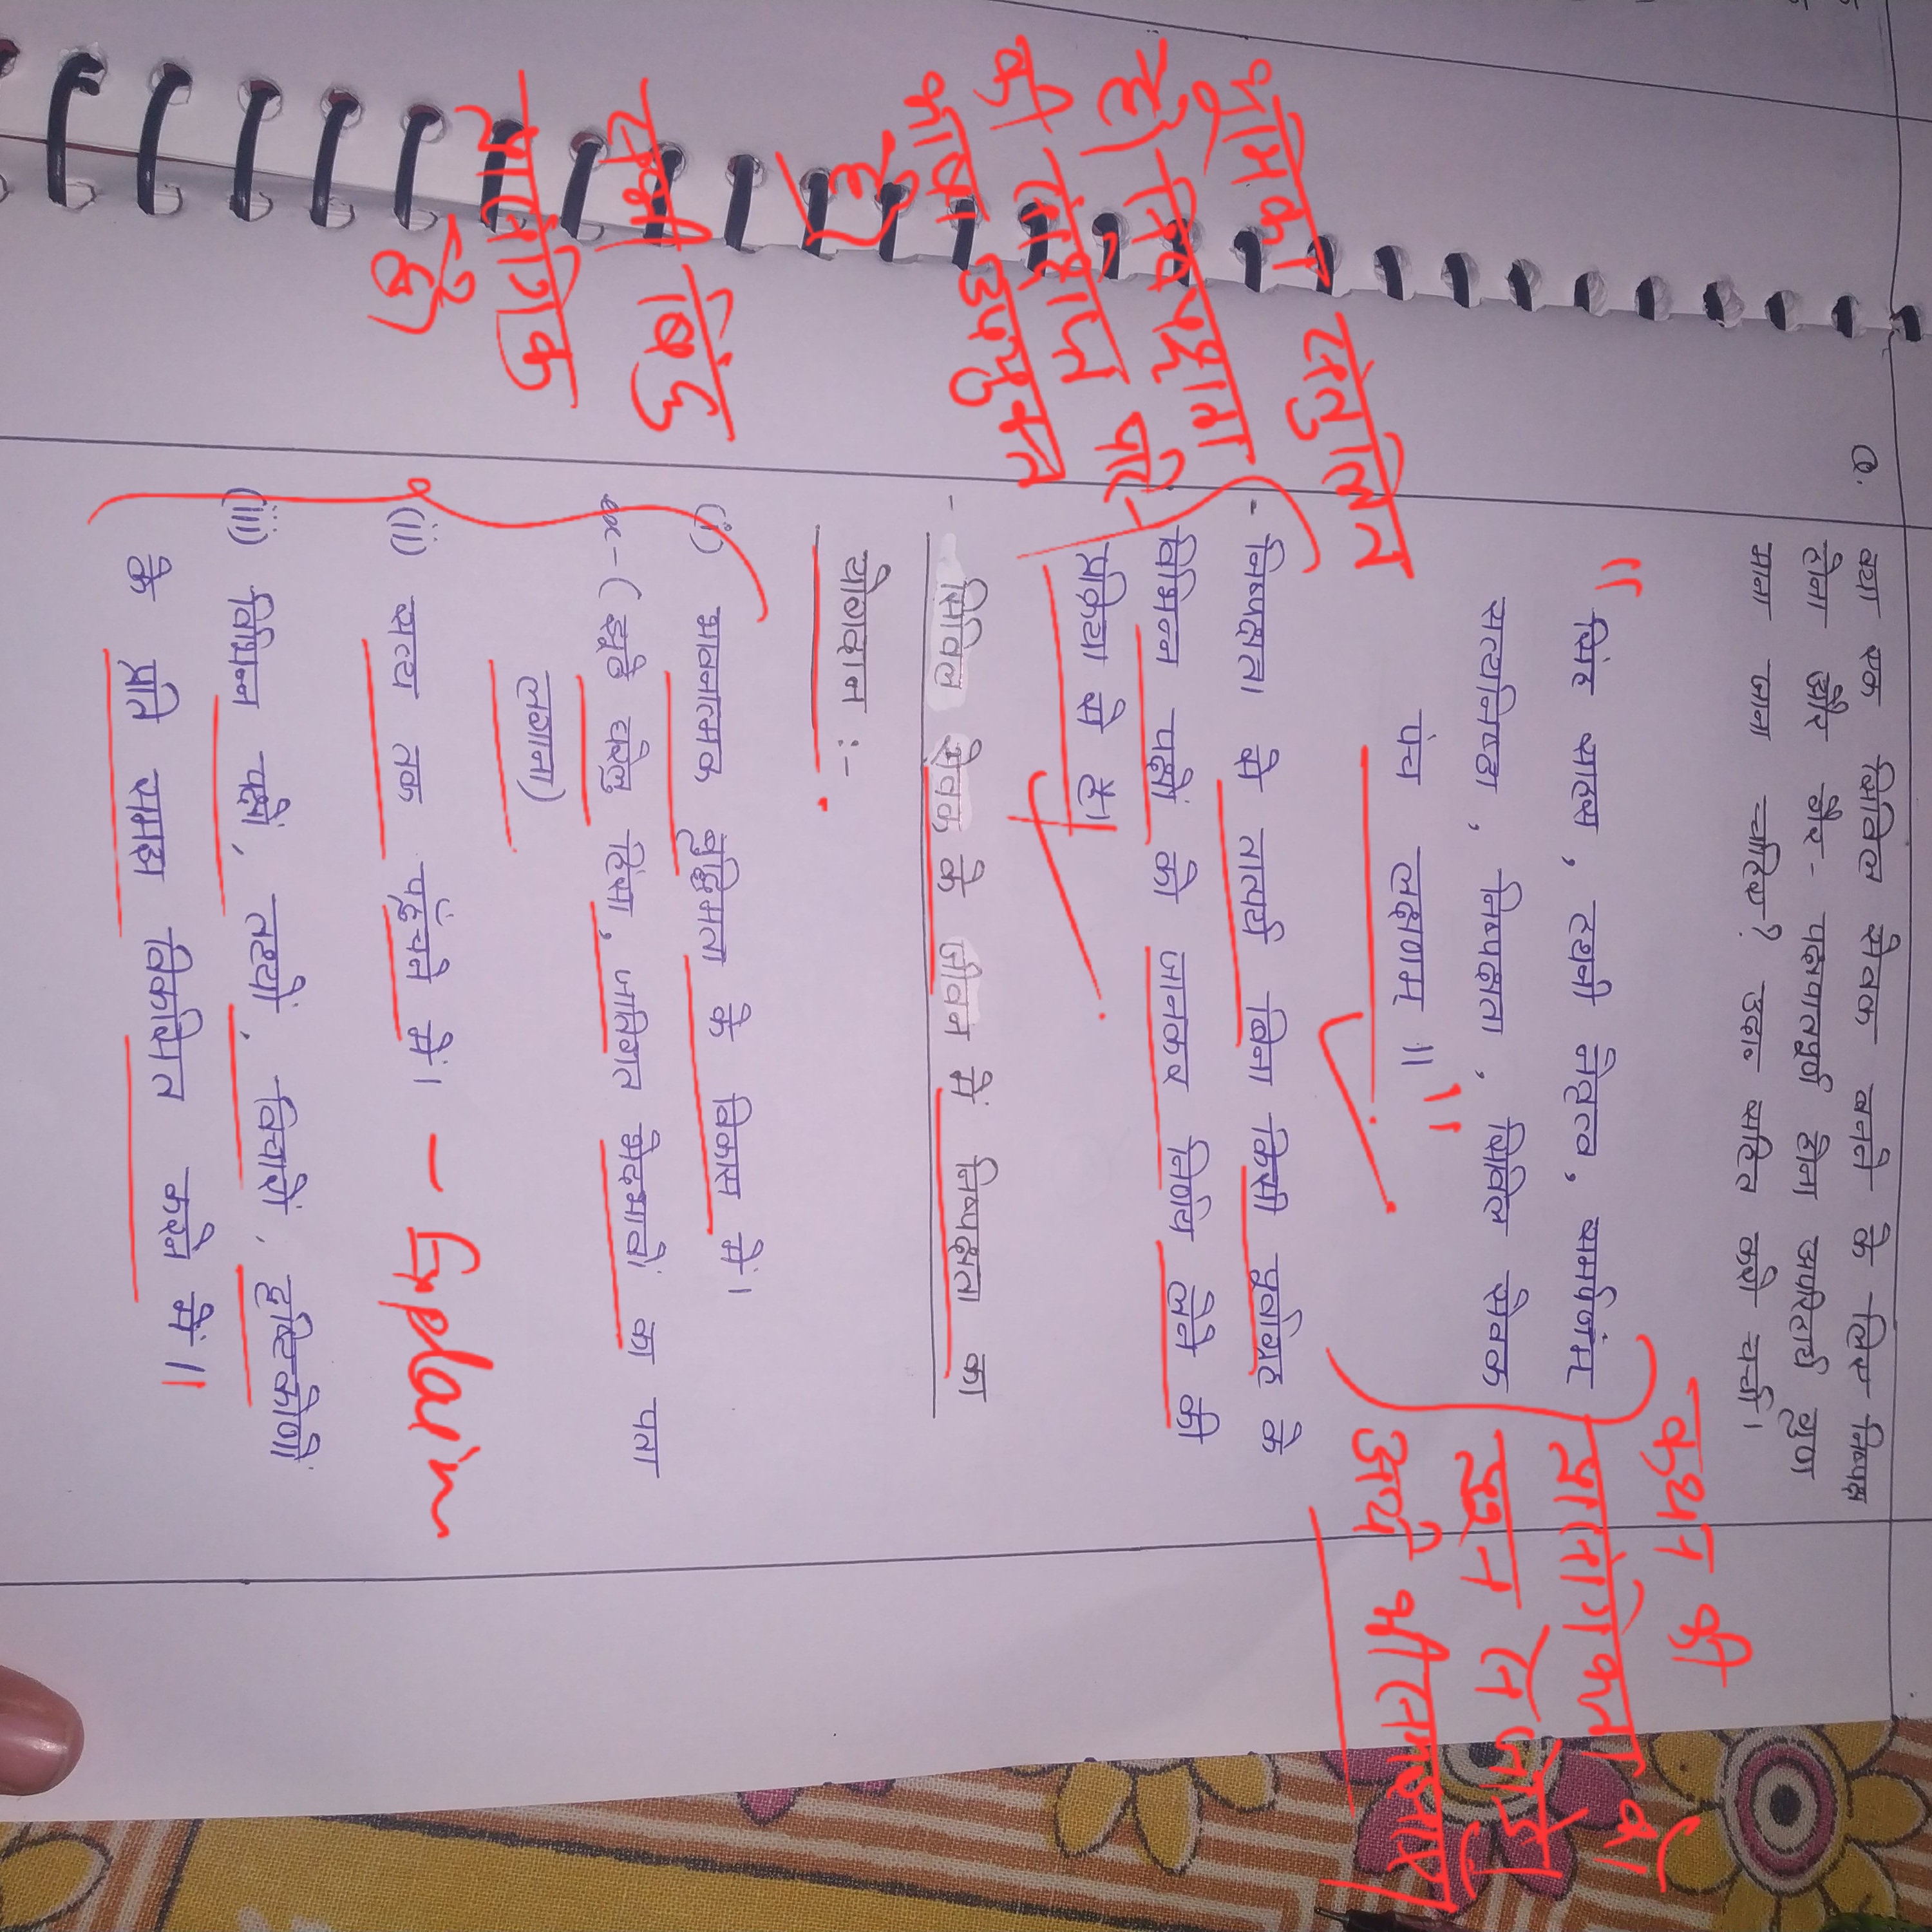 Q. क्या एक सिविल सेवक बनने के लिए निष्पक्ष
होना और गैर- पक्षपातपूर्ण होना अपरिहार्य गुण
माना जाना चाहिए? उदा॰ सहित करो चर्चा।
" सिंह साहस, टहनी नेतृत्व, समर्पणंम्
सत्यनिष्ठा, निष्पक्षता, सिविल सेवक
पंच लक्षणाम् ॥ "
कथन की
प्रासंगिकता को
प्रश्न से जोड़ें
अर्थ भी समझाएं
भूमिका संतुलित
है। निष्पक्षता
की
भाषा उपयुक्त
है।
- निष्पक्षता से तात्पर्य बिना किसी पूर्वाग्रह के
विभिन्न पक्षों को जानकर निर्णय लेने की
प्रक्रिया से है।
- सिविल सेवक के जीवन में निष्पक्षता का
योगदान :-
सभी बिंदु
प्रासंगिक
है।
(i) भावनात्मक बुद्धिमता के विकास में।
ex - (झूठे घरेलु हिंसा, जातिगत भेदभावों का पता
लगाना)
(ii) सत्य तक पहुँचने में। - Explain
(iii) विभिन्न पक्षों, तथ्यों, विचारों, दृष्टिकोणों
के प्रति समझ विकसित करने में ॥